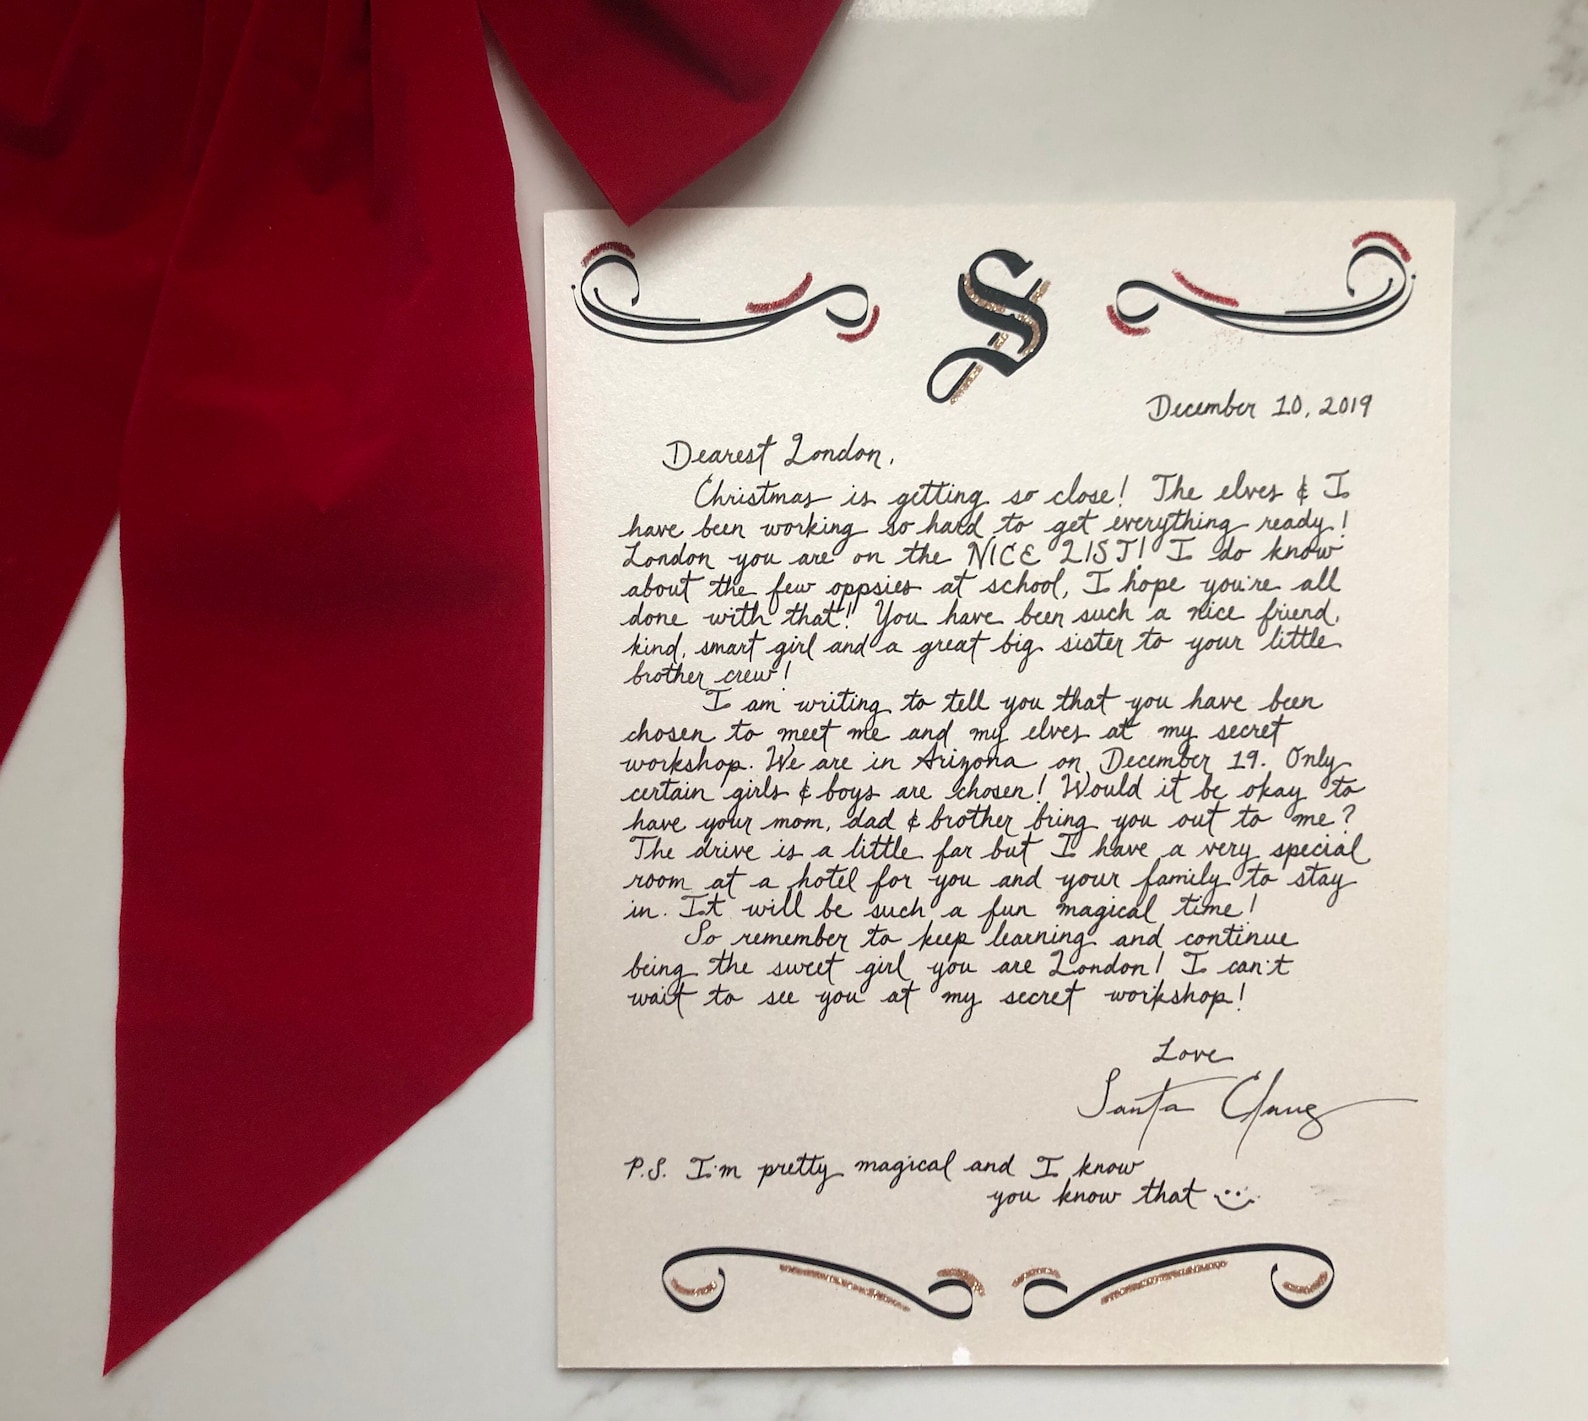 S
December 10, 2019
Dearest London,
Christmas is getting so close! The elves & I
have been working so hard to get everything ready!
London you are on the NICE LIST! I do know
about the few oppsies at school, I hope you're all
done with that! You have been such a nice friend,
kind, smart girl and a great big sister to your little
brother crew!
I am writing to tell you that you have been
chosen to meet me and my elves at my secret
workshop. We are in Arizona on December 19. Only
certain girls & boys are chosen! Would it be okay to
have your mom, dad & brother bring you out to me?
The drive is a little far but I have a very special
room at a hotel for you and your family to stay
in. It will be such a fun magical time!
So remember to keep learning and continue
being the sweet girl you are London! I can't
wait to see you at my secret workshop!
Love
Santa Claus
P.S. I'm pretty magical and I know
you know that